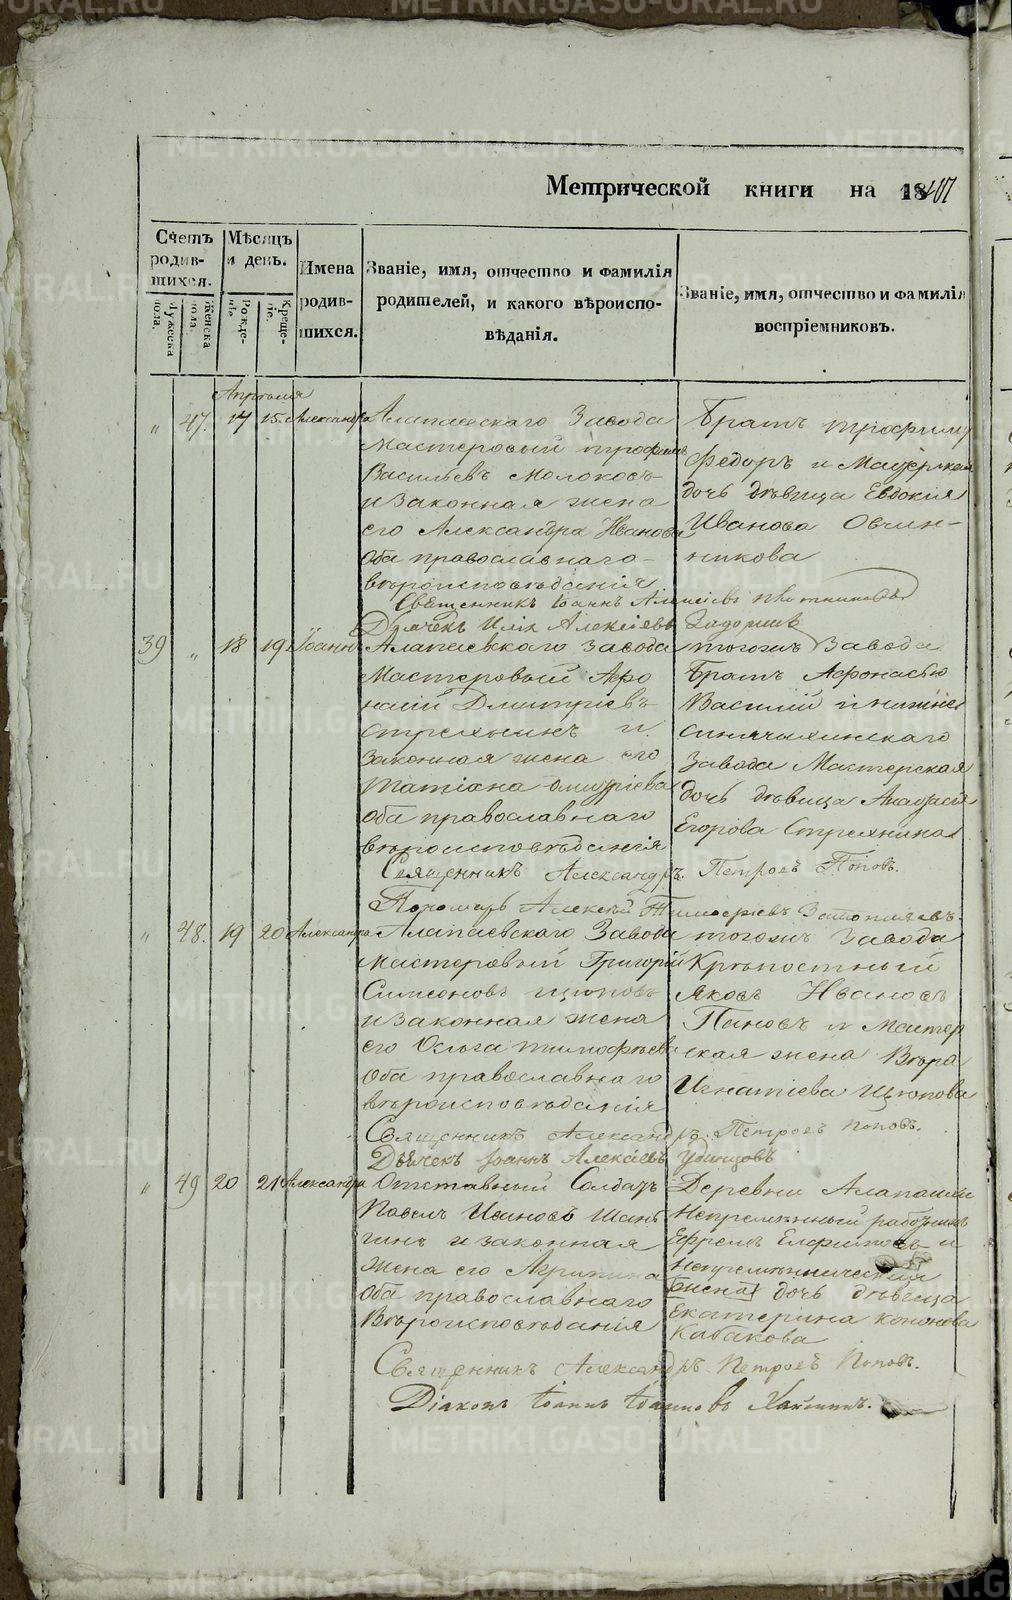 METRIKI.GASO-URAL.RU
Метрической книги на 1847
Счетъ родив-шихся.
Мужеска пола.
Женска пола.
Мѣсяцъ и день.
Рожде-
Креще-
Имена родив-шихся.
Званіе, имя, отчество и фамилія родителей, и какого вѣроиспо-вѣданія.
Званіе, имя, отчество и фамилія воспріемниковъ.
Апрѣля
„ 47. 17 15. Александра
Алапаевскаго Завода
Мастеровый Трофимъ
Васильевъ Молоковъ
и законная жена
его Александра Иванова
Оба православнаго
вѣроисповѣданія
Братъ Трофиму
Федоръ и Мастерская
дочь дѣвица Евдокия
Иванова Овчин-
никова
Священникъ Іоаннъ Алексіевъ
Дьячекъ Илія Алексіевъ
39 „ 18 19 Іоаннъ
Алапаевскаго Завода
Мастеровый Афо
насій Дмитріевъ
Стряхнинъ и
Законная жена его
Татіана Дмитріева
Оба православнаго
вѣроисповѣданія
тогожъ Завода
Братъ Афонасью
Василій и нижне
синячихинскаго
Завода Мастерская
дочь дѣвица
Егорова Стряхнина
Священникъ Александръ Петровъ Поповъ.
Пономарь Алексѣй
„ 48. 19 20 Александра
Алапаевскаго Завода
Мастеровый Григорій
Симеоновъ Щуповъ
и Законная жена
его Ольга Тимофѣева
Оба православнаго
вѣроисповѣданія
тогожъ Завода
Крѣпостный
Яковъ Ивановъ
Пановъ и Мастер
ская жена Вѣра
Игнатіева Щупова
Священникъ Александръ Петровъ Поповъ.
Дьячекъ Іоаннъ Алексѣевъ Удинцовъ
„ 49 20 21 Александра
Отставный Солдатъ
Павелъ Ивановъ Шань
гинъ и законная
жена его Агрипина
Оба православнаго
Вѣроисповѣданія
Деревни Алапаихи
Непремѣнный работникъ
Ефремъ и
дочь дѣвица
Екатерина Кононова
Кабакова
Священникъ Александръ Петровъ Поповъ.
Діаконъ Іоаннъ Іоанновъ